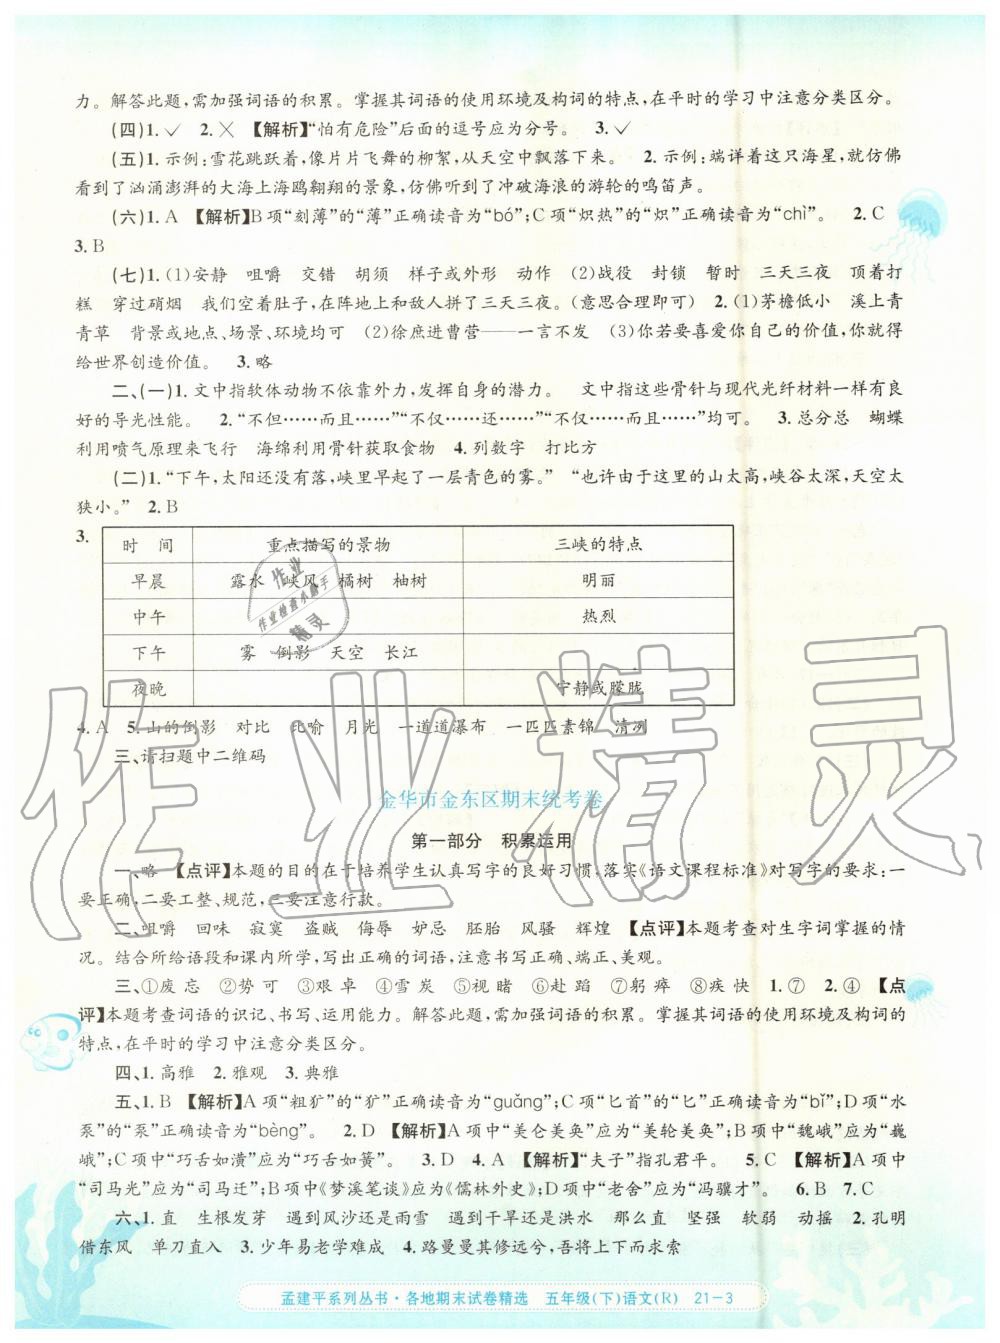 力。解答此题,需加强词语的积累。掌握其词语的使用环境及构词的特点,在平时的学习中注意分类区分。
(四)1.✓ 2.✕ 【解析】“怕有危险”后面的逗号应为分号。 3.✓
(五)1.示例:雪花跳跃着,像片片飞舞的柳絮,从天空中飘落下来。 2.示例:端详着这只海星,就仿佛
看到了汹涌澎湃的大海上海鸥翱翔的景象,仿佛听到了冲破海浪的游轮的鸣笛声。
(六)1.A 【解析】B项“刻薄”的“薄”正确读音为“bó”;C项“炽热”的“炽”正确读音为“chì”。 2.C
3.B
(七)1.(1)安静 咀嚼 交错 胡须 样子或外形 动作 (2)战役 封锁 暂时 三天三夜 顶着打
糕 穿过硝烟 我们空着肚子,在阵地上和敌人拼了三天三夜。(意思合理即可) 2.(1)茅檐低小 溪上青
青草 背景或地点、场景、环境均可 (2)徐庶进曹营——一言不发 (3)你若要喜爱你自己的价值,你就得
给世界创造价值。 3.略
二、(一)1.文中指软体动物不依靠外力,发挥自身的潜力。 文中指这些骨针与现代光纤材料一样有良
好的导光性能。 2.“不但……而且……”“不仅……还……”“不仅……而且……”均可。 3.总分总 蝴蝶
利用喷气原理来飞行 海绵利用骨针获取食物 4.列数字 打比方
(二)1.“下午,太阳还没有落,峡里早起了一层青色的雾。” “也许由于这里的山太高,峡谷太深,天空太
狭小。” 2.B
3.
时 间 重点描写的景物 三峡的特点
早晨 露水 峡风 橘树 柚树 明丽
中午 热烈
下午 雾 倒影 天空 长江
夜晚 宁静或朦胧
4.A 5.山的倒影 对比 比喻 月光 一道道瀑布 一匹匹素锦 清冽
三、请扫题中二维码
金华市金东区期末统考卷
第一部分 积累运用
一、略 【点评】本题的目的在于培养学生认真写字的良好习惯,落实《语文课程标准》对写字的要求:一
要正确,二要工整、规范,三要注意行款。
二、咀嚼 回味 寂寞 盗贼 侮辱 妒忌 胚胎 风骚 辉煌 【点评】本题考查对生字词掌握的情
况。结合所给语段和课内所学,写出正确的词语,注意书写正确、端正、美观。
三、①废忘 ②势可 ③艰卓 ④雪炭 ⑤视睹 ⑥赴蹈 ⑦躬瘁 ⑧疾快 1.⑦ 2.④ 【点
评】本题考查词语的识记、书写、运用能力。解答此题,需加强词语的积累。掌握其词语的使用环境及构词的
特点,在平时的学习中注意分类区分。
四、1.高雅 2.雅观 3.典雅
五、1.B 【解析】A项“粗犷”的“犷”正确读音为“guǎng”;C项“匕首”的“匕”正确读音为“bǐ”;D项“水
泵”的“泵”正确读音为“bèng”。 2.D 【解析】A项中“美仑美奂”应为“美轮美奂”;B项中“魏峨”应为“巍
峨”;C项中“巧舌如潢”应为“巧舌如簧”。 3.D 4.A 【解析】“夫子”指孔君平。 5.C 【解析】A项中
“司马光”应为“司马迁”;B项中《梦溪笔谈》应为《儒林外史》;D项中“老舍”应为“冯骥才”。 6.B 7.C
六、1.直 生根发芽 遇到风沙还是雨雪 遇到干旱还是洪水 那么直 坚强 软弱 动摇 2.孔明
借东风 单刀直入 3.少年易老学难成 4.路曼曼其修远兮,吾将上下而求索
孟建平系列丛书·各地期末试卷精选 五年级(下)语文(R) 21-3
作业精灵
作业
作业检查小助手
精灵